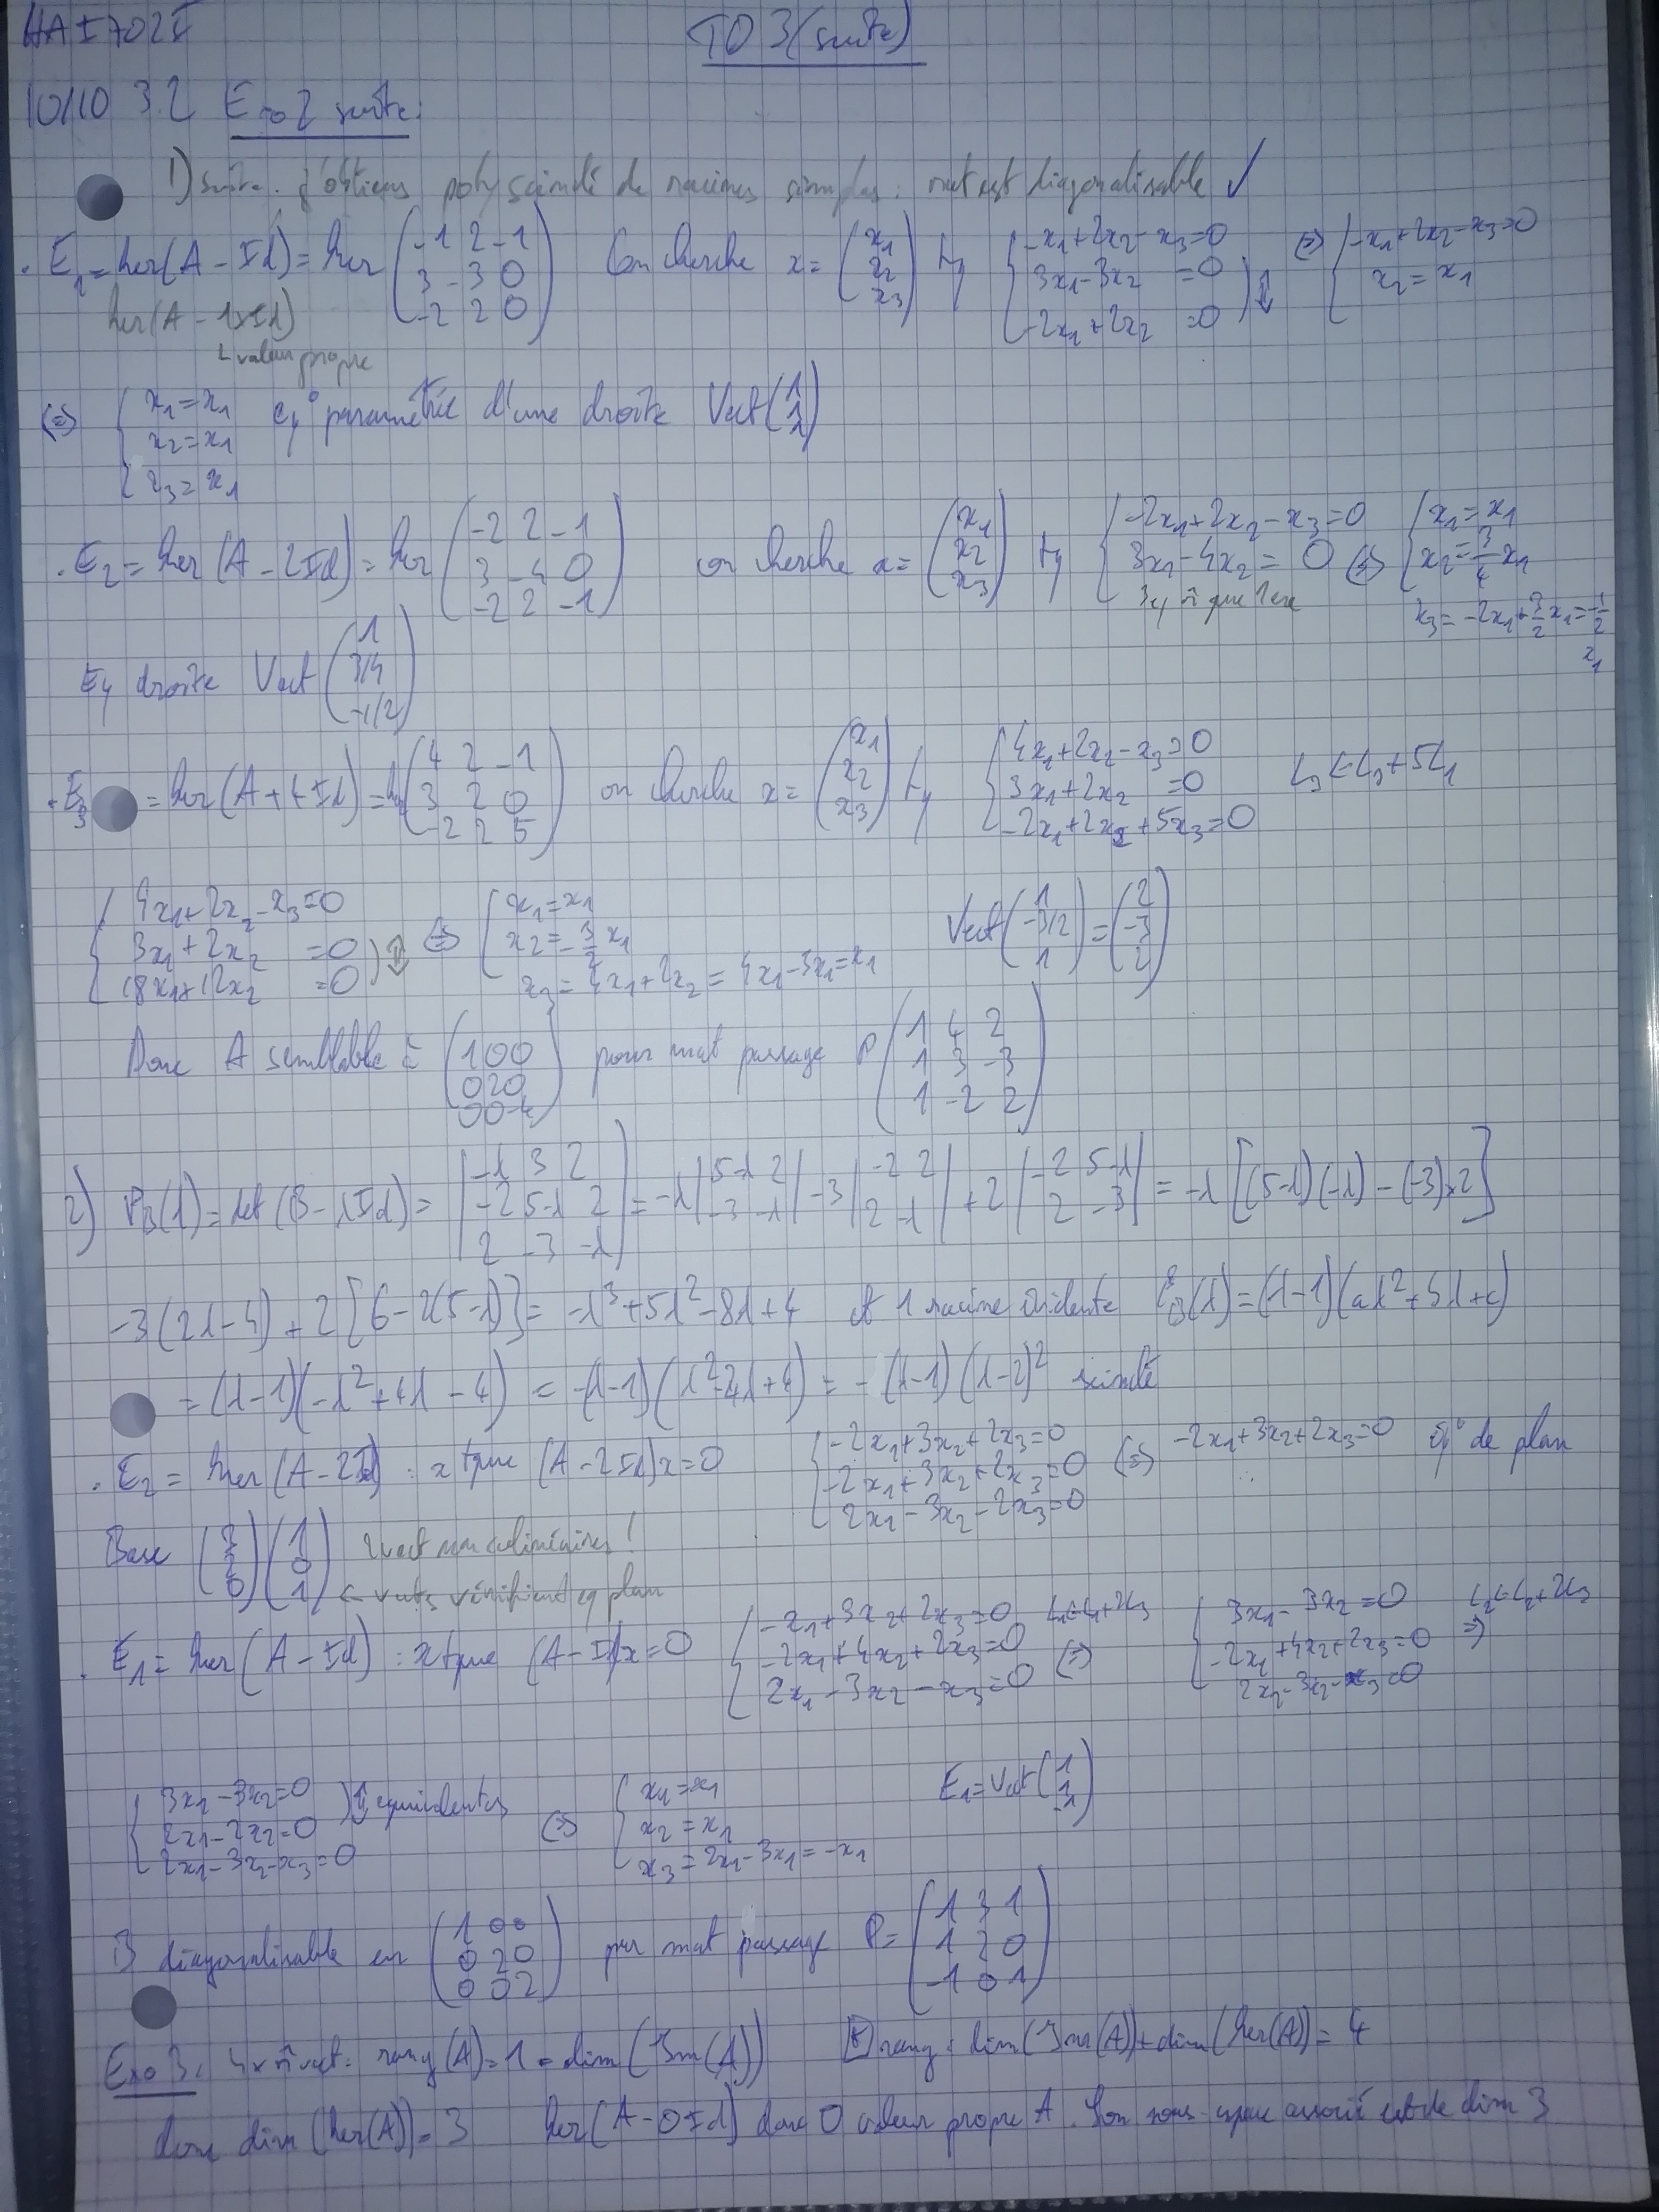 HAI702I
TD 3 (suite)
10/10 3.2 Exo 2 suite:
1) suite. j'obtiens poly scindé de racines simples: mat est diagonalisable ✓
. E₁ = ker(A - Id) = ker (-1 2 -1 / 3 -3 0 / -2 2 0) on cherche x = (x₁ / x₂ / x₃) tq { -x₁+2x₂-x₃=0 / 3x₁-3x₂ =0 / -2x₁+2x₂ =0 ⇕ (=) { -x₁+2x₂-x₃=0 / x₂ = x₁
ker(A - 1×Id)
valeur propre
(=) { x₁=x₁ / x₂=x₁ / x₃=x₁ éq° paramétrée d'une droite Vect(1 / 1 / 1)
. E₂ = ker(A - 2Id) = ker (-2 2 -1 / 3 -4 0 / -2 2 -1) on cherche x = (x₁ / x₂ / x₃) tq { -2x₁+2x₂-x₃=0 / 3x₁-4x₂ = 0 (=) { x₁=x₁ / x₂=3/4 x₁ / x₃=-2x₁+3/2 x₁=-1/2 x₁
3 éq m̂ que 1ere
Eq droite Vect (1 / 3/4 / -1/2)
. E₃ = ker(A+4Id) = ker (4 2 -1 / 3 2 0 / -2 2 5) on cherche x = (x₁ / x₂ / x₃) tq { 4x₁+2x₂-x₃=0 / 3x₁+2x₂ =0 / -2x₁+2x₂+5x₃=0 L₃ ← L₃+5L₁
{ 4x₁+2x₂-x₃=0 / 3x₁+2x₂ =0 / 18x₁+12x₂ =0 ⇕ (=) { x₁=x₁ / x₂=-3/2 x₁ / x₃=4x₁+2x₂=4x₁-3x₁=x₁ Vect (1 / -3/2 / 1) = (2 / -3 / 2)
Donc A semblable à (1 0 0 / 0 2 0 / 0 0 -4) pour mat passage P (1 4 2 / 1 3 -3 / 1 -2 2)
2) P_B(λ) = det(B - λId) = |-λ 3 2 / -2 5-λ 2 / 2 -3 -λ| = -λ |5-λ 2 / -3 -λ| -3 |-2 2 / 2 -λ| +2 |-2 5-λ / 2 -3| = -λ [(5-λ)(-λ) - (-3)×2]
-3(2λ-4) + 2[6-2(5-λ)] = -λ³+5λ²-8λ+4 et 1 racine évidente P_B(λ) = (λ-1)(aλ²+bλ+c)
= (λ-1)(-λ²+4λ-4) = -(λ-1)(λ²-4λ+4) = -(λ-1)(λ-2)² scindé
. E₂ = ker(A-2Id) : x tq ue (A-2Id)x=0 { -2x₁+3x₂+2x₃=0 / -2x₁+3x₂+2x₃=0 / 2x₁-3x₂-2x₃=0 (=) -2x₁+3x₂+2x₃=0 éq° de plan
Base (3 / 2 / 0) (1 / 0 / 1) 2 vect non colinéaires !
← vects vérifient eq plan
. E₁ = ker(A-Id) : x tq ue (A-Id)x=0 { -x₁+3x₂+2x₃=0 / -2x₁+4x₂+2x₃=0 / 2x₁-3x₂-x₃=0 L₁←L₁+2L₃ (=) { 3x₁-3x₂=0 / -2x₁+4x₂+2x₃=0 / 2x₁-3x₂-x₃=0 L₂←L₂+2L₃ =)
{ 3x₁-3x₂=0 / 2x₁-2x₂=0 / 2x₁-3x₂-x₃=0 ⇕ equivalentes (=) { x₁=x₁ / x₂=x₁ / x₃=2x₁-3x₁=-x₁ E₁=Vect (1 / 1 / -1)
B diagonalisable en (1 0 0 / 0 2 0 / 0 0 2) par mat passage P= (1 3 1 / 1 2 0 / -1 0 1)
Exo 3: 4× m̂ vect. rang(A)=1=dim(Im(A)) rang: dim(Im(A))+dim(ker(A))=4
donc dim(ker(A))=3 ker(A-0Id) donc 0 valeur propre A. Son sous-espace associé est de dim 3